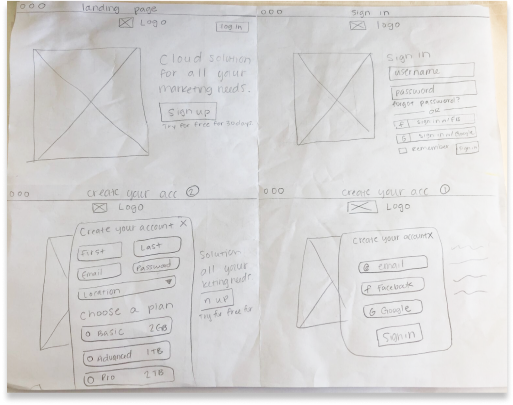 landing page
Logo
log in
Cloud solution
for all your
marketing needs.
Sign up
sign in
logo
Sign in
username
password
forgot password?
OR
remember
sign in
create your acc ②
Logo
Create your account X
First
Last
Email
Password
Location
Choose a plan
Basic 2GB
Advanced 1TB
Pro 2TB
Solution
all your
keting needs
n up
create your acc ①
Logo
Create your account X
@ email
f facebook
G Google
Sign in